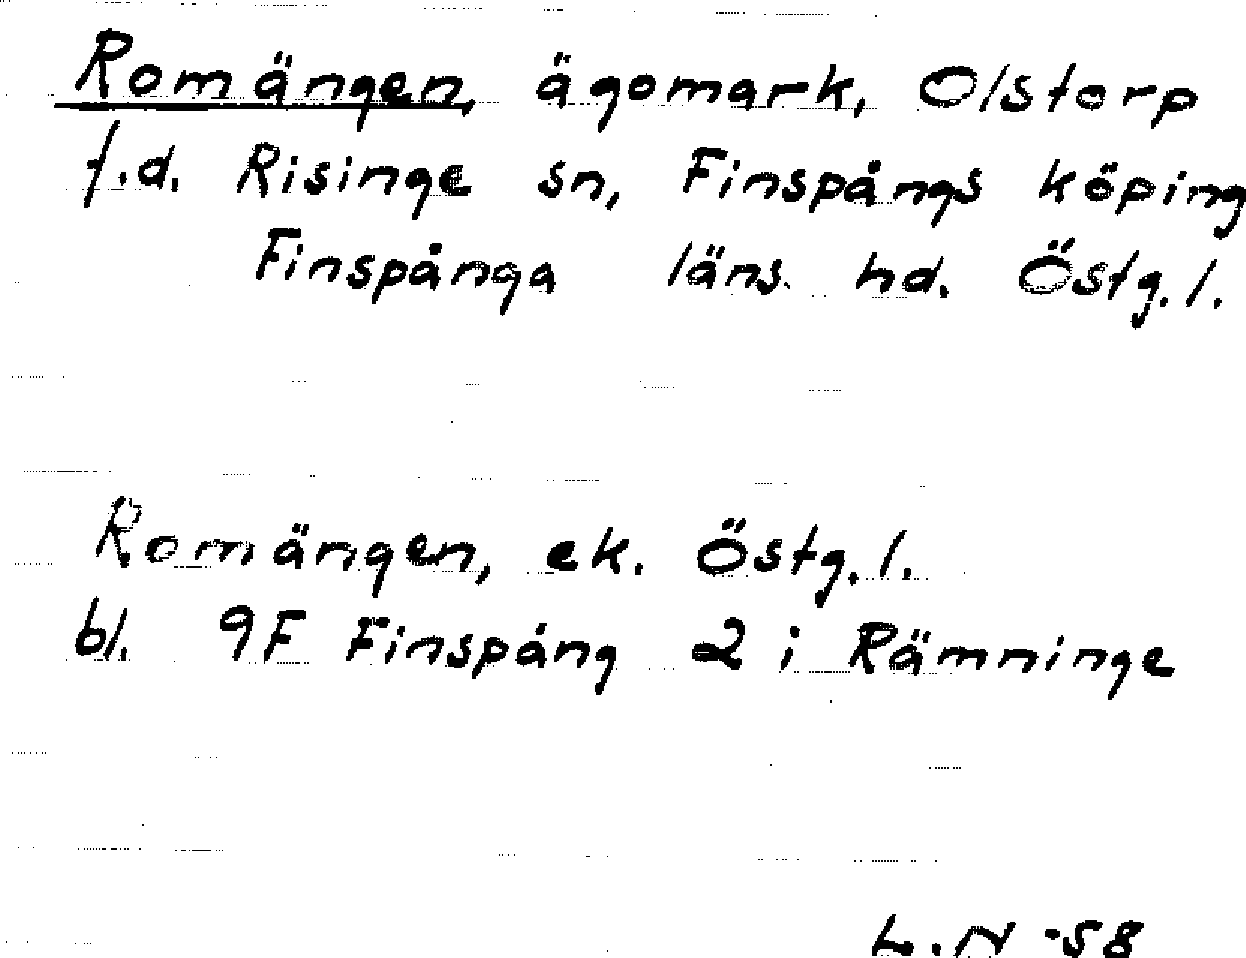 Romängen, ägomark, Olstorp
f.d. Risinge sn, Finspångs köping
Finspånga läns hd. Östg.l.
Romängen, ek. Östg.l.
bl. 9F Finspång 2 i Rämninge
L.N -58